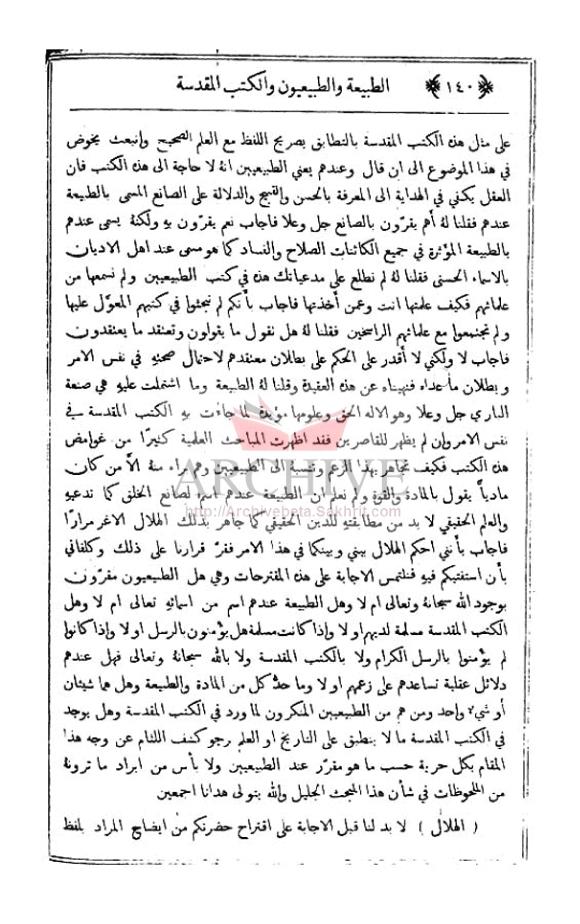 ﴿١٤٠﴾ الطبيعة والطبيعيون والكتب المقدسة
على مثال هذه الكتب المقدسة بالتطابق بصريح اللفظ مع العلم الصحيح وانبعث يخوض
في هذا الموضوع الى ان قال وعندهم يعني الطبيعيين انه لا حاجة الى هذه الكتب فان
العقل يكفي في الهداية الى المعرفة بالحسن والقبيح والدلالة على الصانع المسمى بالطبيعة
عندهم فقلنا لهُ أهم يقرّون بالصانع جل وعلا فاجاب نعم يقرّون بهِ ولكنهُ يسمى عندهم
بالطبيعة المؤثرة في جميع الكائنات الصلاح والفساد كما هو مسمى عند اهل الاديان
بالاسماء الحسنى فقلنا لهُ لم نطلع على مدعياتك هذه في كتب الطبيعيين ولم نسمعها من
علمائهم فكيف علمتها انت وعمن أخذتها فاجاب بأنكم لم تبحثوا في كتبهم المعوّل عليها
ولم تجتمعوا مع علمائهم الراسخين فقلنا لهُ هل تقول ما يقولون وتعتقد ما يعتقدون
فاجاب لا ولكني لا أقدر على الحكم على بطلان معتقدهم لاحتمال صحتهِ في نفس الامر
وبطلان ماعداه فنهيناه عن هذه العقيدة وقلنا لهُ الطبيعة وما اشتملت عليهِ هي صنعة
الباري جل وعلا وهو الاله الحق وعلومها مؤيدة لما جاءت بهِ الكتب المقدسة في
نفس الامر وان لم يظهر للقاصرين فقد اظهرت المباحث العلمية كثيرًا من غوامض
هذه الكتب فكيف تجاهر بهذا الزعم وتنسبه الى الطبيعيين وهم براء منهُ الاّ من كان
مادياً يقول بالمادة والقوة ولم نعلم ان الطبيعة عندهم اسم لصانع الخلق كما تدعيهِ
والعلم الحقيقي لا بد من مطابقتهِ للدين الحقيقي كما جاهر بذلك الهلال الاغر مرارًا
فاجاب بأنني احكم الهلال بيني وبينكما في هذا الامر فقرّ قرارنا على ذلك وكلفاني
بأن استفتيكم فيهِ فنلتمس الاجابة على هذه المقترحات وهي هل الطبيعيون مقرّون
بوجود الله سبحانهُ وتعالى ام لا وهل الطبيعة عندهم اسم من اسمائهِ تعالى ام لا وهل
الكتب المقدسة مسلمة لديهم او لا واذا كانت مسلمة هل يؤمنون بالرسل او لا واذا كانوا
لم يؤمنوا بالرسل الكرام ولا بالكتب المقدسة ولا بالله سبحانهُ وتعالى فهل عندهم
دلائل عقلية تساعدهم على زعمهم او لا وما حدّ كل من المادة والطبيعة وهل هما شيئان
أو شيء واحد ومن هم من الطبيعيين المنكرون لما ورد في الكتب المقدسة وهل يوجد
في الكتب المقدسة ما لا ينطبق على التاريخ او العلم رجو كشف اللثام عن وجه هذا
المقام بكل حرية حسب ما هو مقرّر عند الطبيعيين ولا بأس من ايراد ما ترونهُ
من الملحوظات في شأن هذا المبحث الجليل والله يتولى هدانا اجمعين
( الهلال ) لا بد لنا قبل الاجابة على اقتراح حضرتكم من ايضاح المراد بلفظ
ARCHIVE
http://Archivebeta.Sakhrit.com